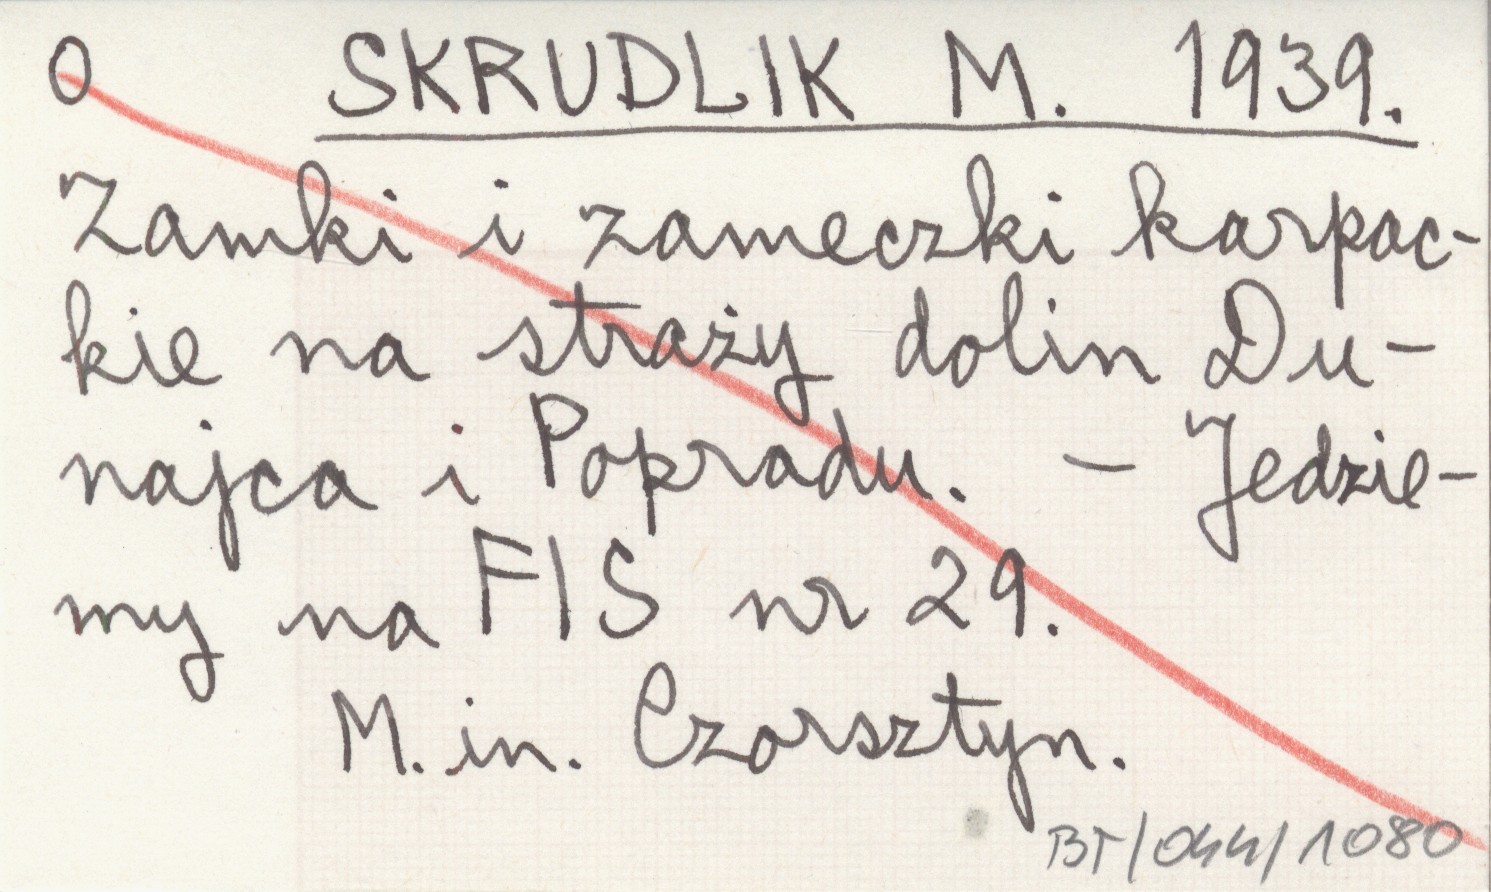 O SKRUDLIK M. 1939.
Zamki i zameczki karpac-
kie na straży dolin Du-
najca i Popradu. – Jedzie-
my na FIS nr 29.
M.in. Czorsztyn.
BT/044/1080